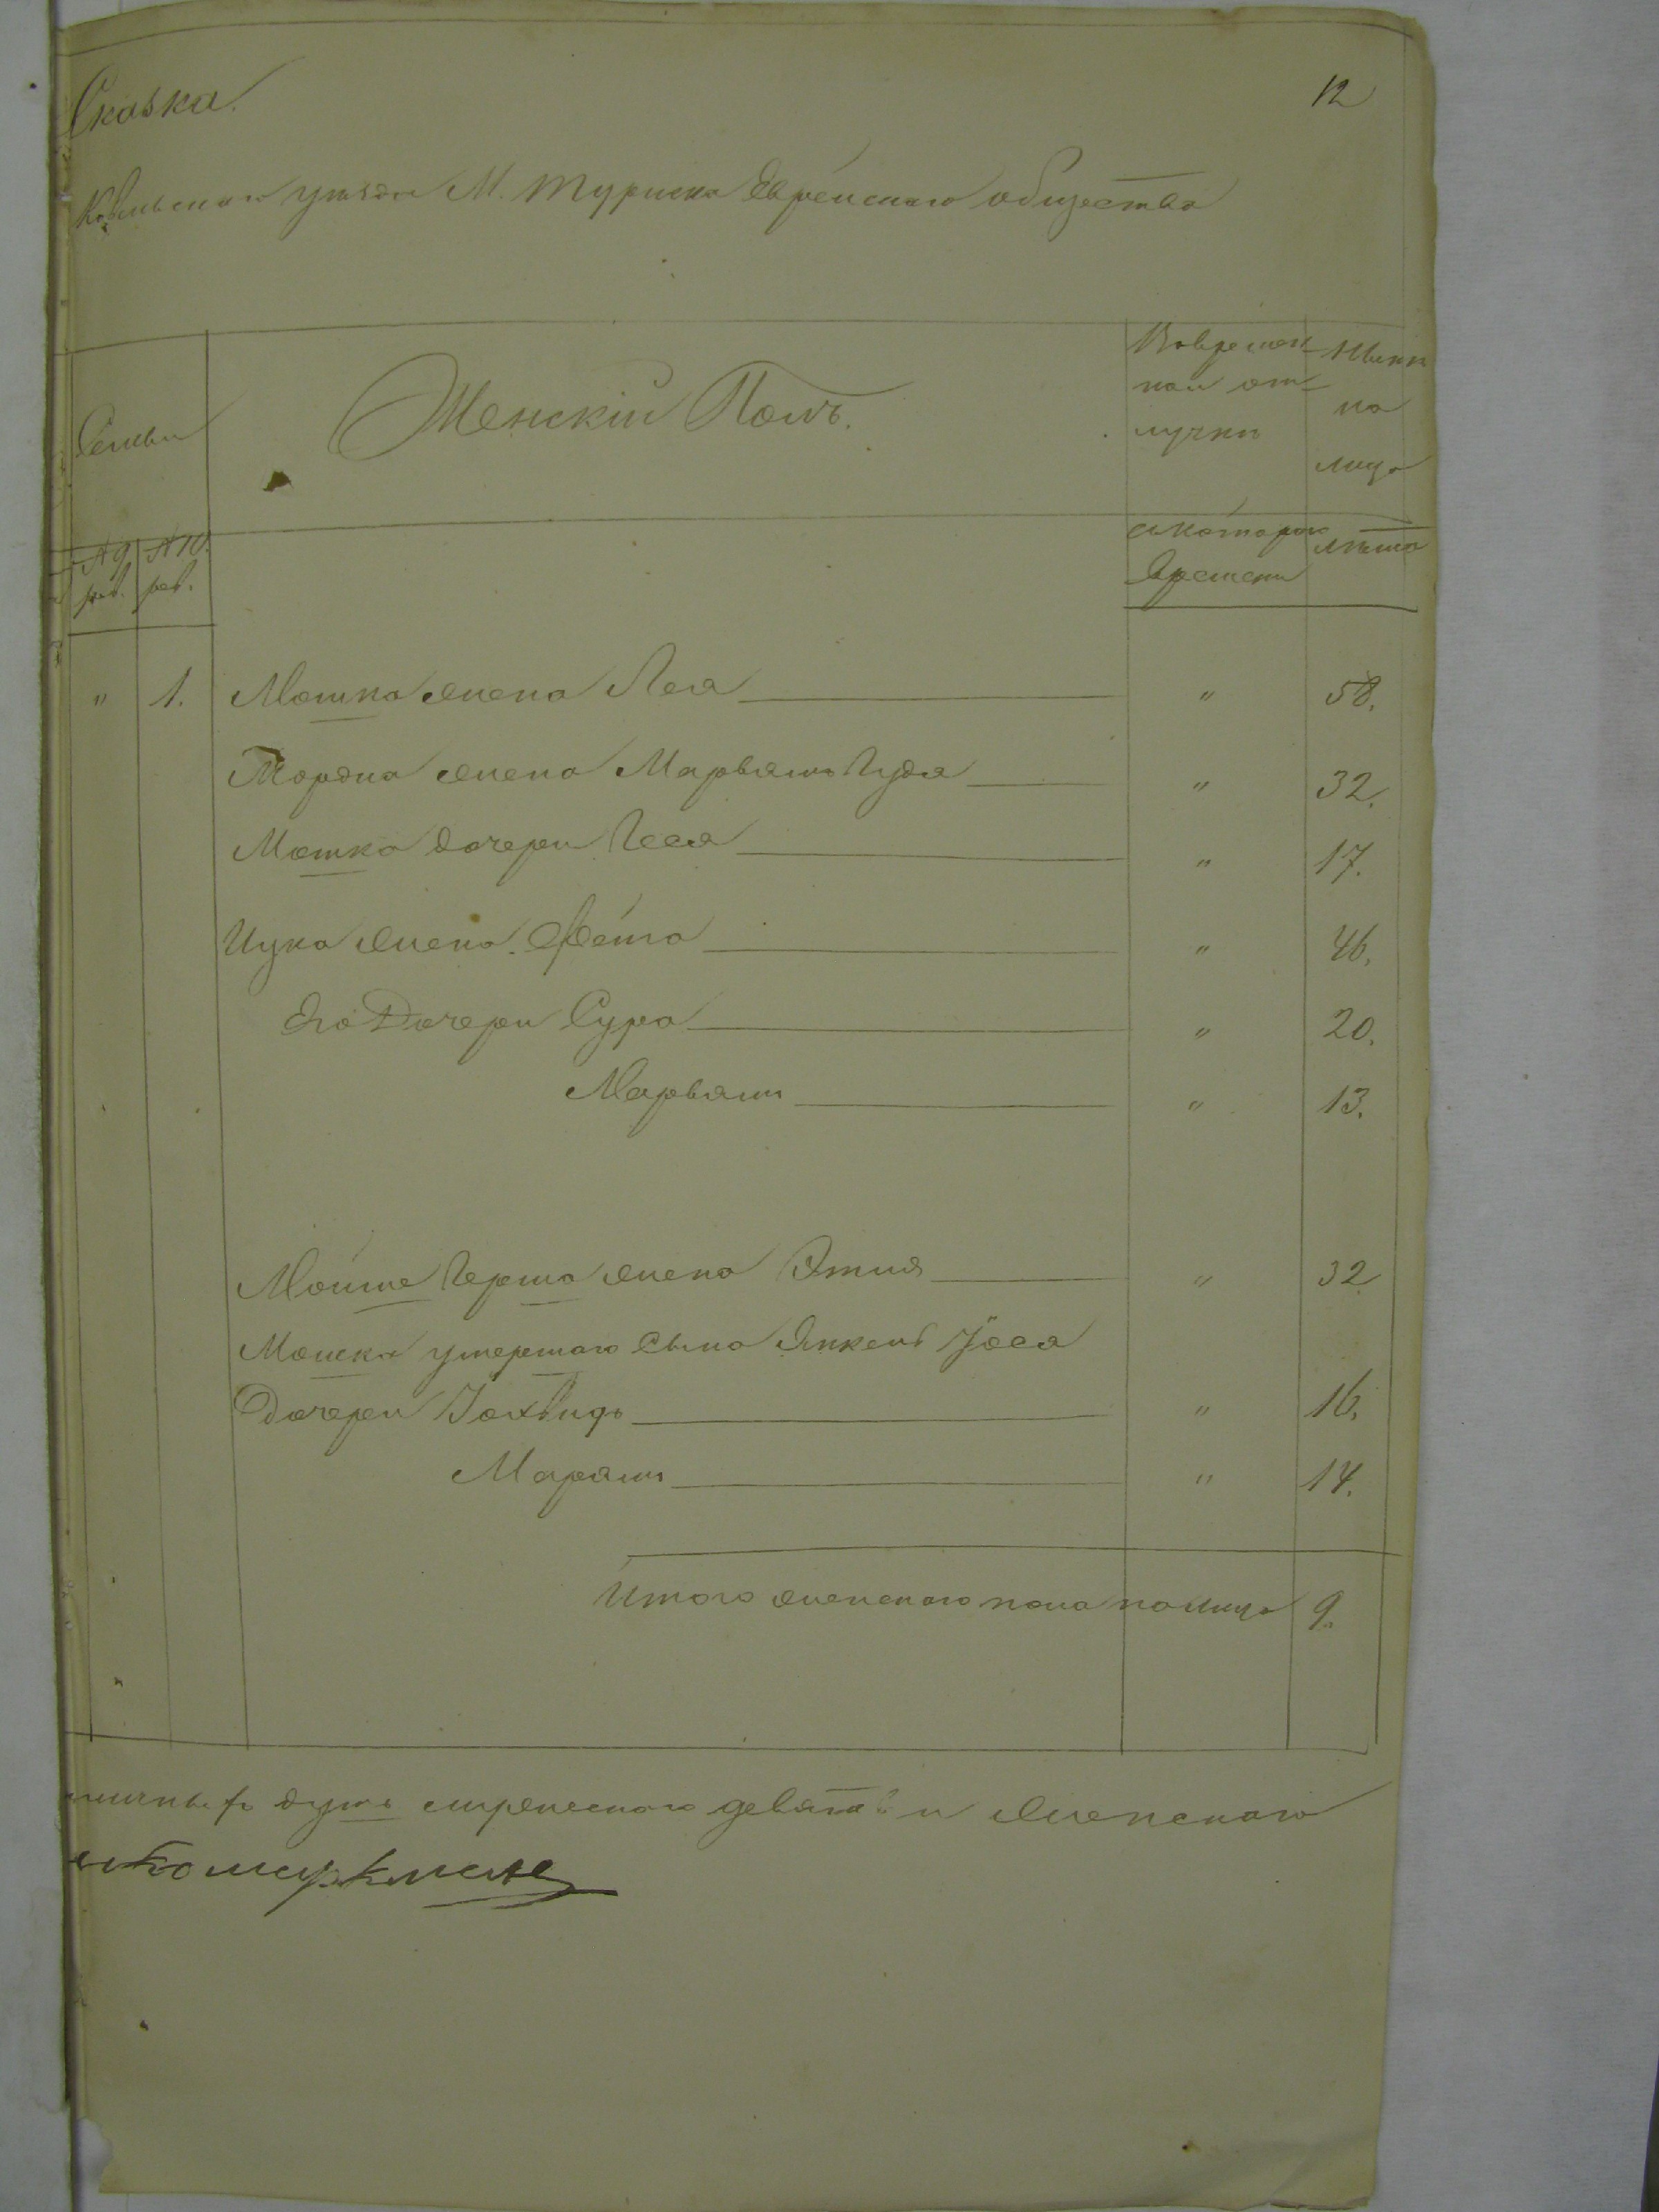 Сказка.
12
Ковельского уѣзда М. Туриска Еврейскаго общества
Семьи
Женскій Полъ.
Вовремен-
ной от-
лучкѣ
Нынѣ
на
лицо
№ 9 рев.
№ 10. рев.
съ котораго
времени
лѣта
" 1. Мошка жена Лея " 58.
Мордка жена Марьямъ Гудя " 32.
Мошка дочери Геся " 17.
Ицка жена " 46.
Его Дочери Сура " 20.
Марьямъ " 13.
Мойше Герша жена Этля " 32
Мошка умершаго сына Янкель Іося
Дочери Іохвидъ " 16.
Марямъ " 14.
Итого женскаго пола на лицо 9.
душъ мужескаго девять и женскаго